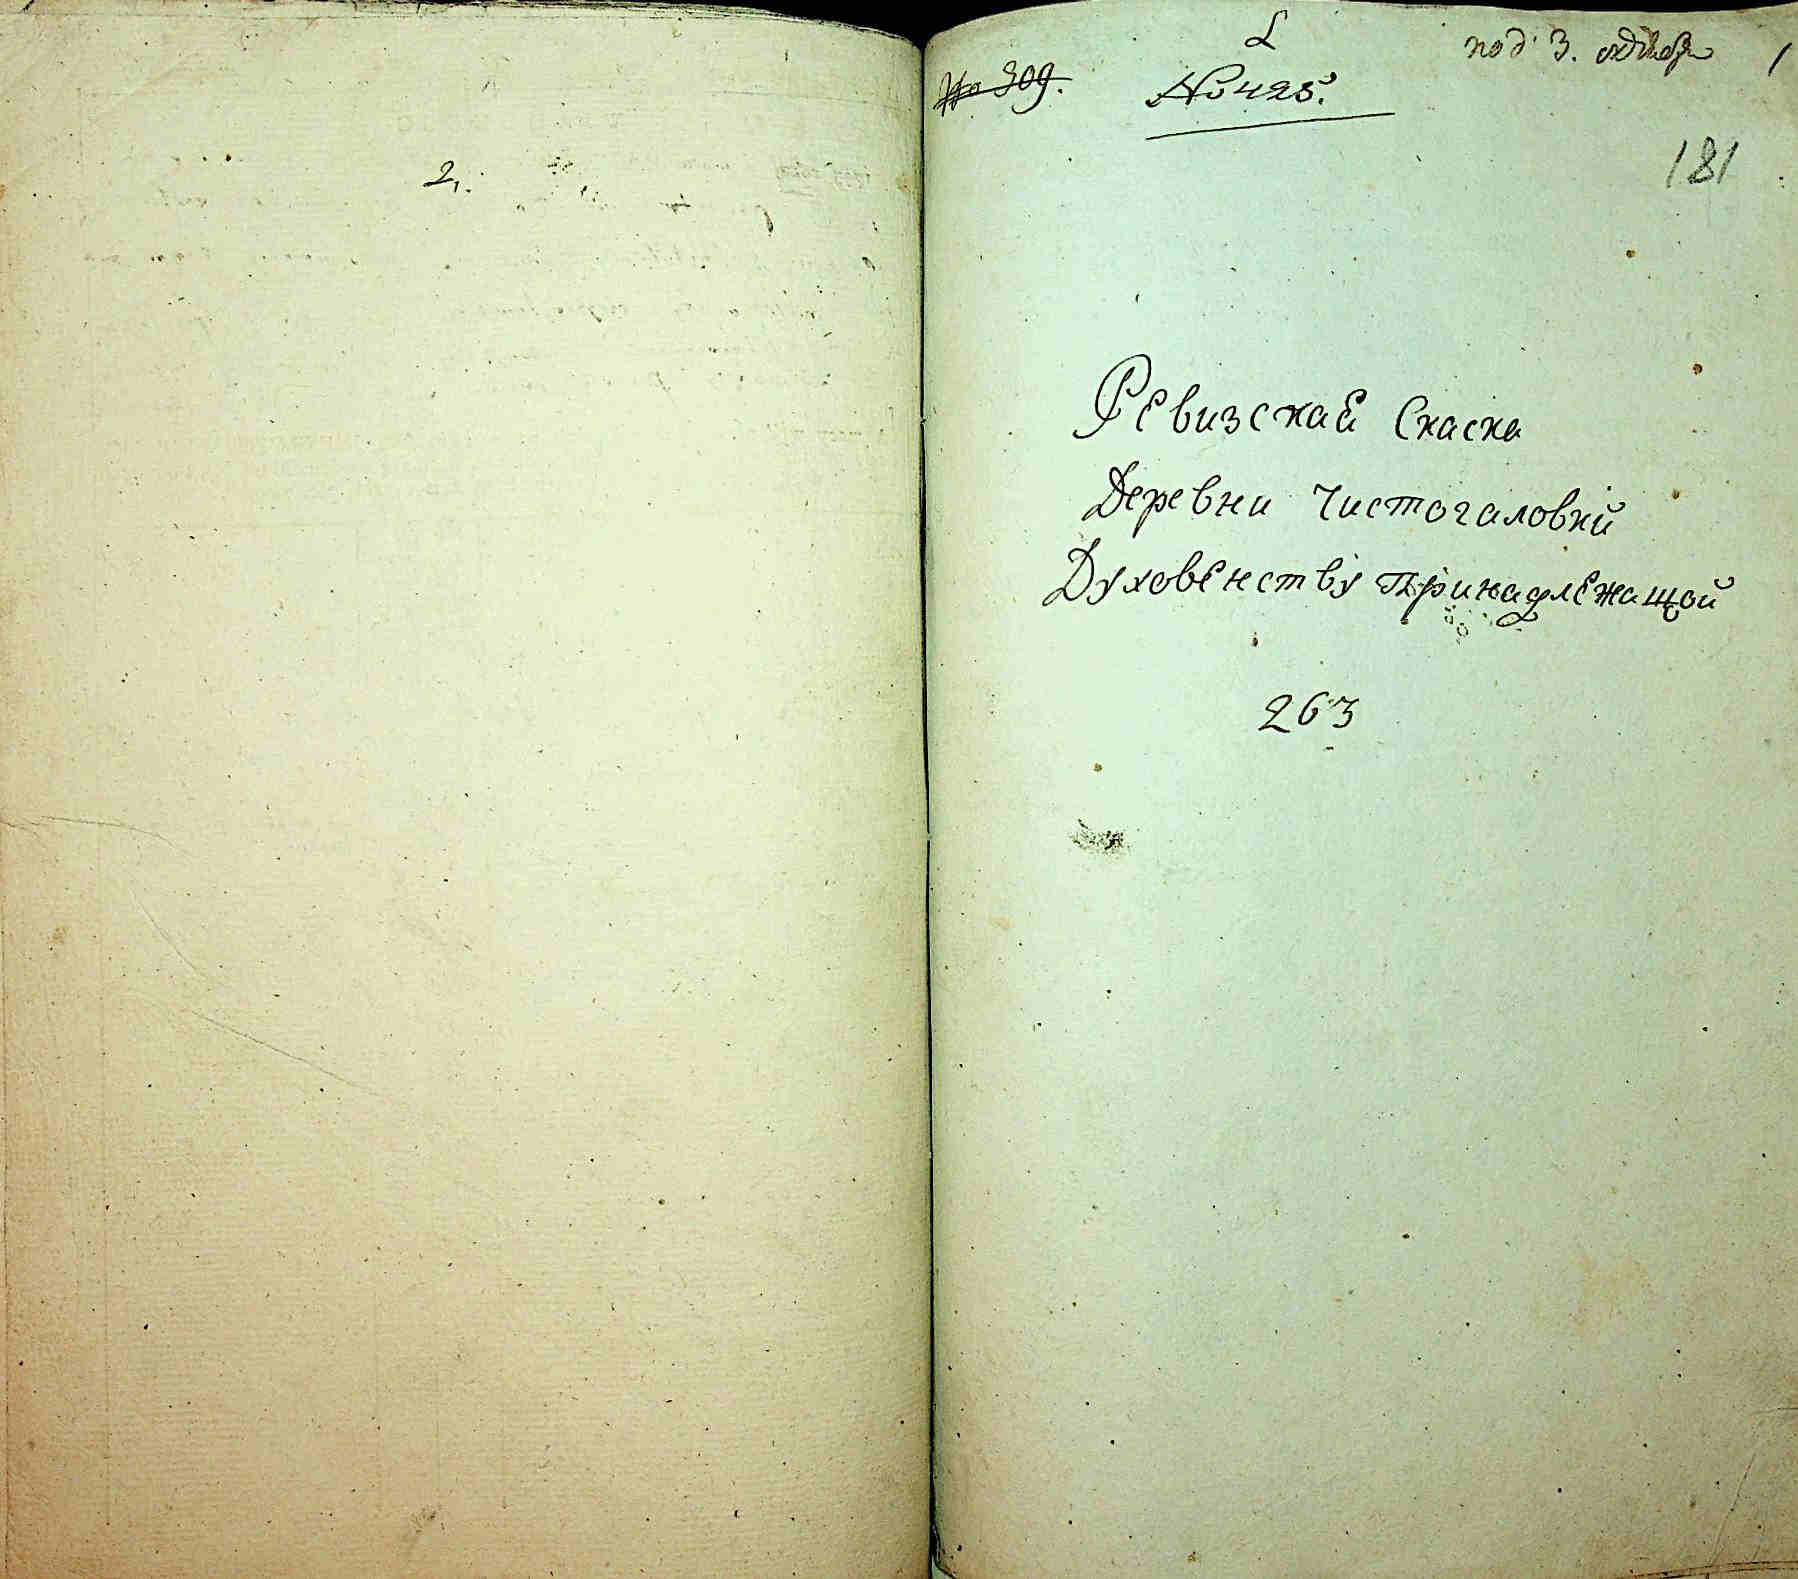 2.
№ 309.
№ 425.
под 3. октября
1
181
Ревизскаѣ Скаска
Деревни Чистогаловки
Духовенству принадлежащой
263